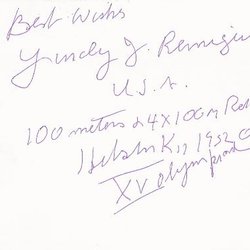 Best Wishes
Lindy J. Remigin
U.S.A.
100 meters & 4X100M Rel
Helsinki, 1952
XV Olympiad